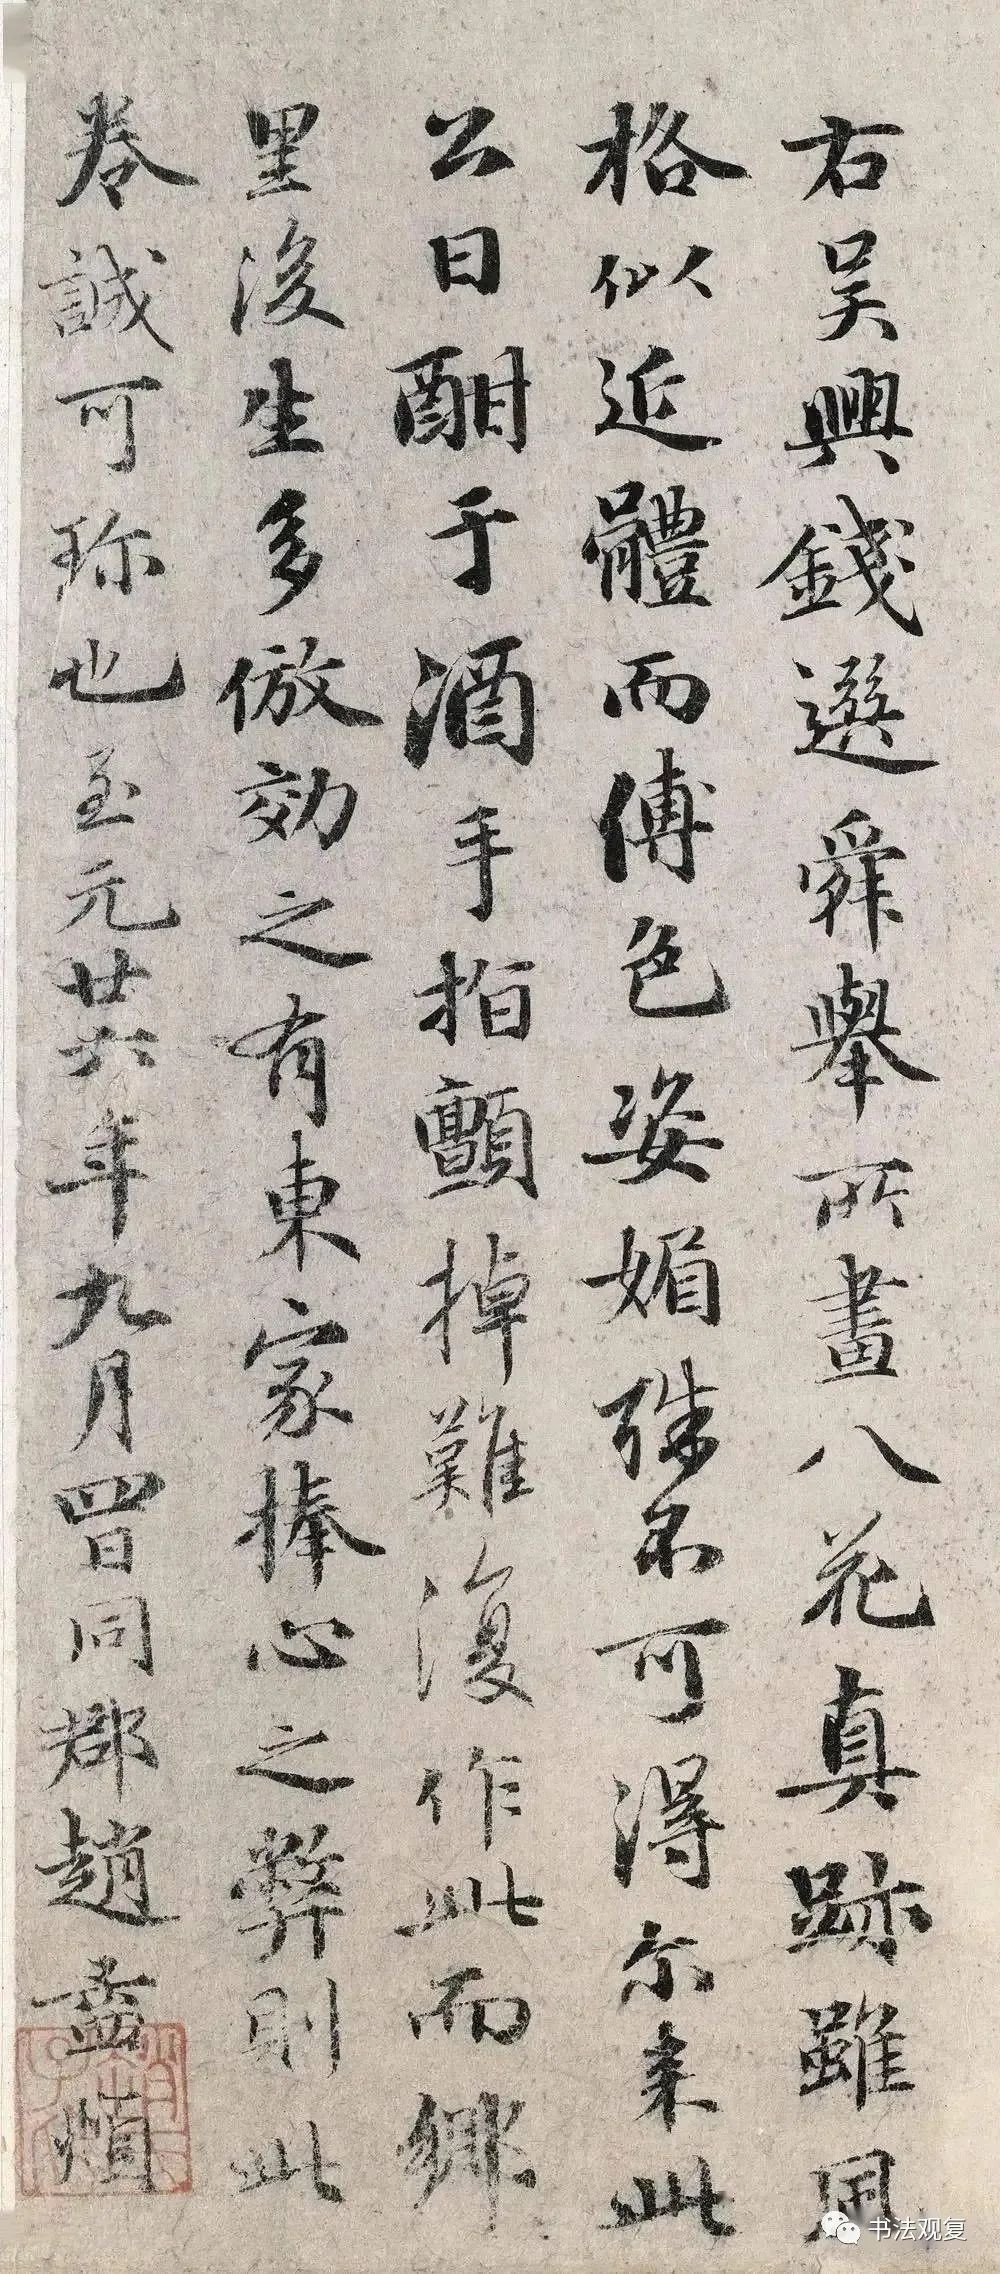 右吴興錢選舜舉所畫八花真跡雖風
格似近體而傅色姿媚殊不可得尔来此
公日酣于酒手指顫掉難復作此而鄉
里後生多倣効之有東家捧心之弊則此
卷誠可珎也至元廿六年九月四日同郡趙孟頫
书法观复